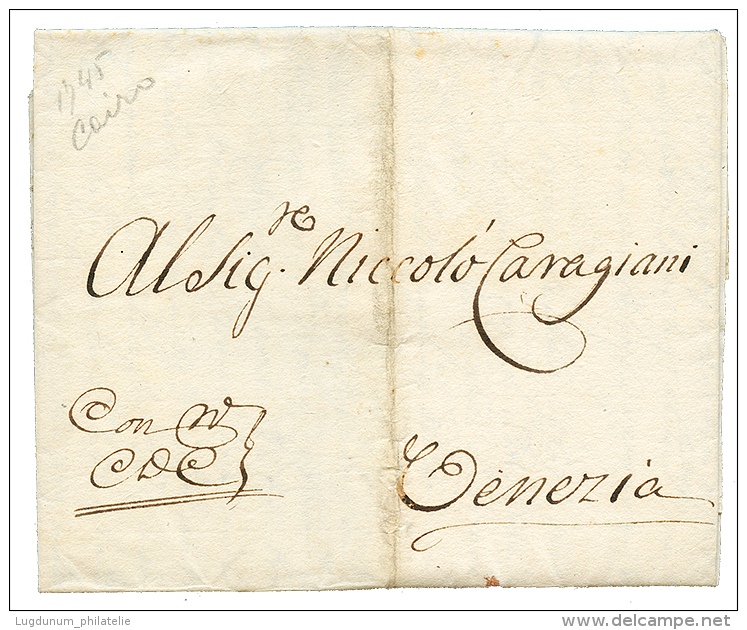 1745
Cairo
Al Sig.re Niccoló Caragiani
Con
CDC
Venezia
Lugdunum_philatelie
www.delcampe.net